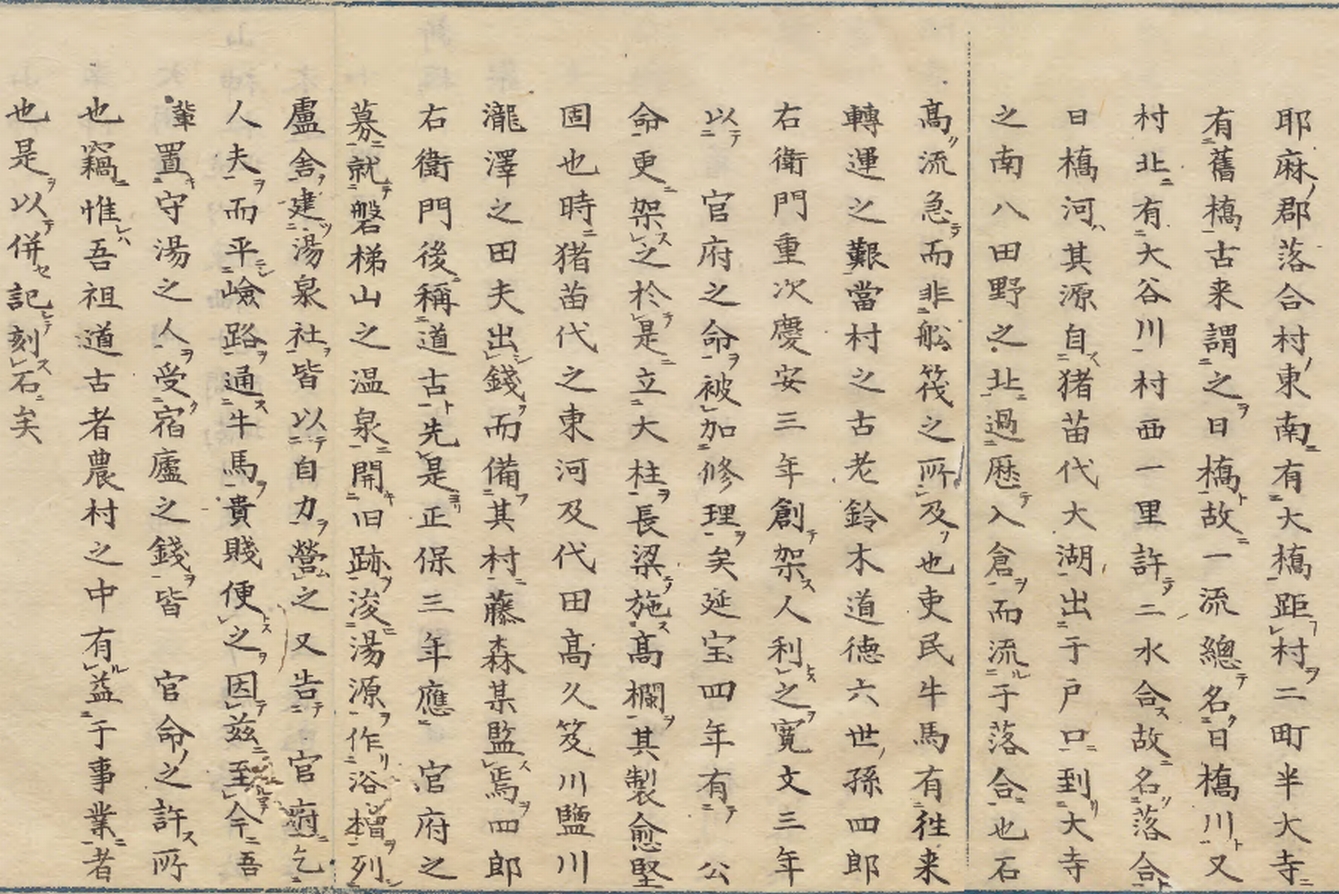 耶麻郡落合村東南有大橋距村二町半大寺
有舊橋古来謂之日橋故一流總名日橋川又
村北有大谷川村西一里許二水合故名落合
日橋河其源自猪苗代大湖出于戸口到大寺
之南八田野之北過歴入倉而流于落合也石
髙流急而非舩筏之所及也吏民牛馬有徃来
轉運之艱當村之古老鈴木道徳六世孫四郎
右衛門重次慶安三年創架人利之寛文三年
以　官府之命被加修理矣延宝四年有　公
命更架之於是立大柱長梁施髙欄其製愈堅
固也時猪苗代之東河及代田髙久笈川鹽川
瀧澤之田夫出錢而備其村藤森某監焉四郎
右衛門後稱道古先是正保三年應　官府之
募就磐梯山之温泉開旧跡浚湯源作浴槽列
盧舎建湯泉社皆以自力營之又告　官府乞
人夫而平嶮路通牛馬貴賤便之因兹至今吾
輩置守湯之人受宿廬之錢皆　官命之許所
也竊惟吾祖道古者農村之中有益于事業者
也是以併記刻石矣